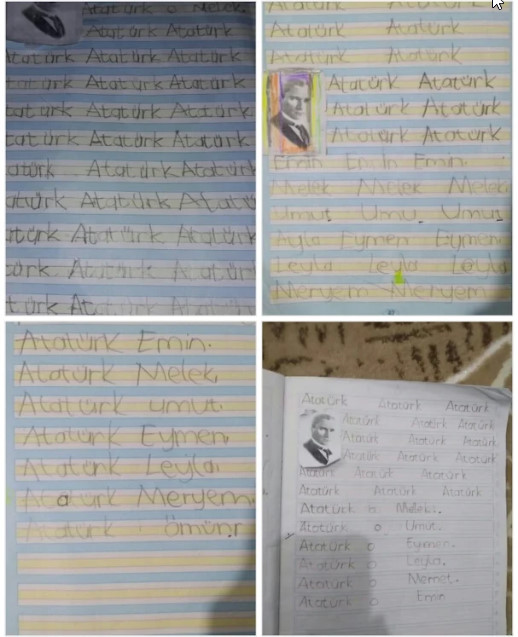 Atatürk o Melek
Atatürk Atatürk
Atatürk Atatürk Atatürk
Atatürk Atatürk Atatürk
tatürk Atatürk Atatürk
tatürk Atatürk Atatürk
atürk Atatürk Atatürk
atürk Atatürk Atatü
türk Atatürk Atatürk
türk Atatürk Atatürk
türk Atatürk Atatürk
Atatürk Atatürk
Atatürk Atatürk
Atatürk Atatürk
Atatürk Atatürk
Atatürk Atatürk
Atatürk Atatürk
Emin Emin Emin
Melek Melek Melek
Umut Umut Umut
Ayla Eymen Eymen
Leyla Leyla Leyla
Meryem Meryem
Atatürk Emin.
Atatürk Melek
Atatürk umut.
Atatürk Eymen
Atatürk Leyla
Atatürk Meryem
Atatürk Ömür
Atatürk Atatürk Atatürk
Atatürk Atatürk Atatürk
Atatürk Atatürk Atatürk
Atatürk Atatürk Atatürk
Atatürk Atatürk Atatürk
Atatürk Atatürk Atatürk
Atatürk o Melek.
Atatürk o Umut.
Atatürk o Eymen.
Atatürk o Leyla.
Atatürk o Memet.
Atatürk o Emin